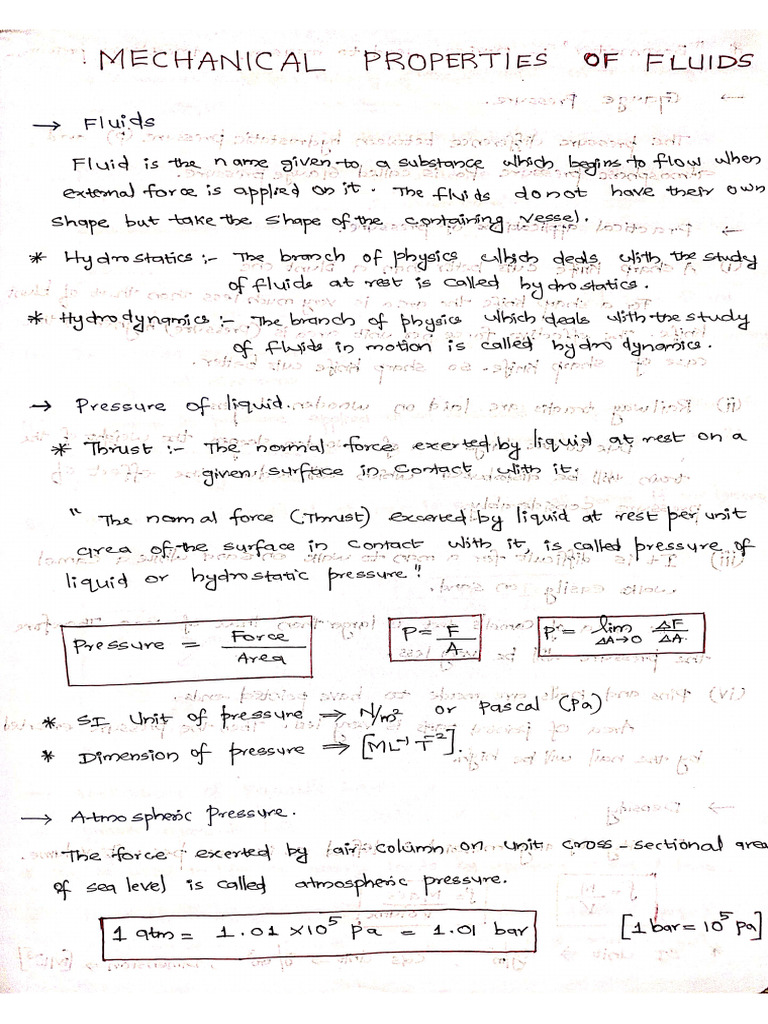 MECHANICAL PROPERTIES OF FLUIDS
→ Fluids
Fluid is the name given to a substance which begins to flow when
external force is applied on it. The fluids do not have their own
shape but take the shape of the containing vessel.
* Hydrostatics :- The branch of physics which deals with the study
of fluids at rest is called hydrostatics.
* Hydrodynamics :- The branch of physics which deals with the study
of fluids in motion is called hydrodynamics.
→ Pressure of liquid.
* Thrust :- The normal force exerted by liquid at rest on a
given surface in contact with it.
" The normal force (Thrust) excerted by liquid at rest per unit
area of the surface in contact with it, is called pressure of
liquid or hydrostatic pressure"
Pressure = Force / Area P = F / A P = lim ΔA→0 ΔF / ΔA
* SI Unit of pressure ⇒ N/m² or Pascal (Pa)
* Dimension of pressure ⇒ [ML⁻¹ T⁻²].
→ Atmospheric Pressure.
The force excerted by air column on unit cross-sectional area
of sea level is called atmospheric pressure.
1 atm = 1.01 × 10⁵ Pa = 1.01 bar [1 bar = 10⁵ Pa]